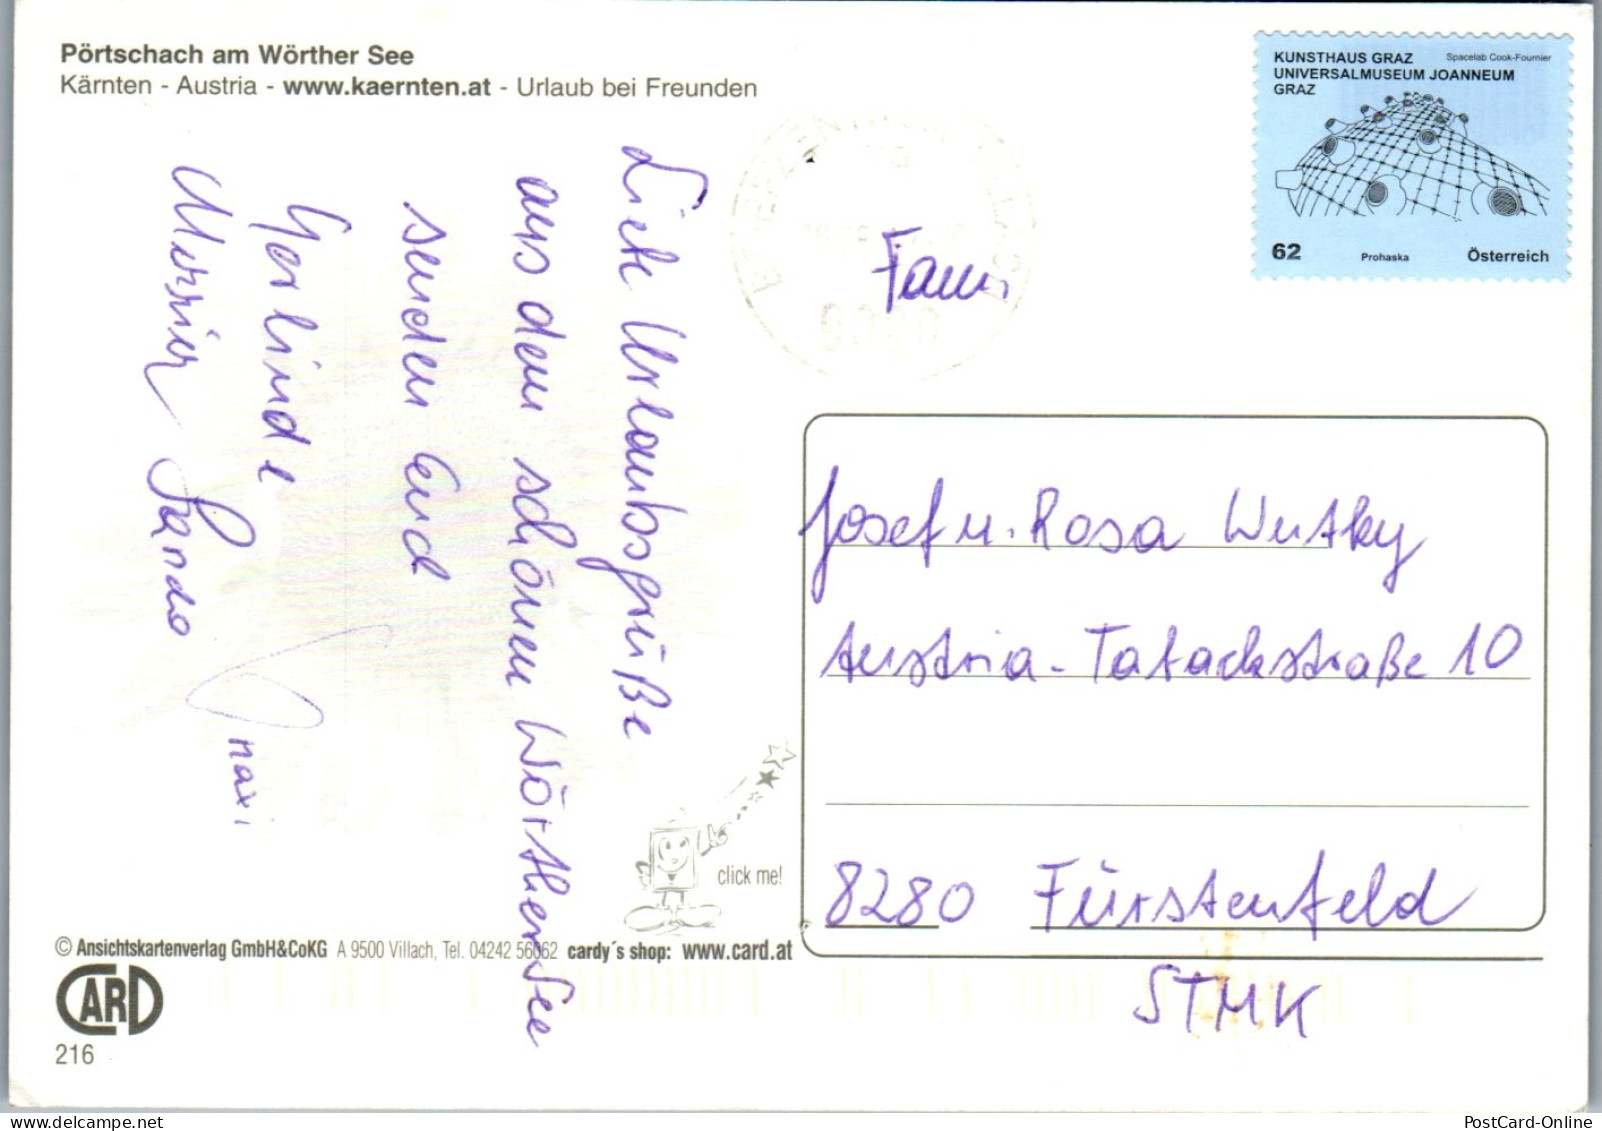 Pörtschach am Wörther See
Kärnten - Austria - www.kaernten.at - Urlaub bei Freunden
KUNSTHAUS GRAZ
Spacelab Cook-Fournier
UNIVERSALMUSEUM JOANNEUM
GRAZ
62
Prohaska
Österreich
Liebe Urlaubsgrüße
aus dem schönen Wörthersee
senden Euch
Gerlinde
Werner
maxi
Fam.
Josef u. Rosa Wutky
Austria-Tabackstraße 10
8280 Fürstenfeld
STMK
click me!
© Ansichtskartenverlag GmbH&CoKG A 9500 Villach, Tel. 04242 56062 cardy´s shop: www.card.at
CARD
216
PostCard-Online